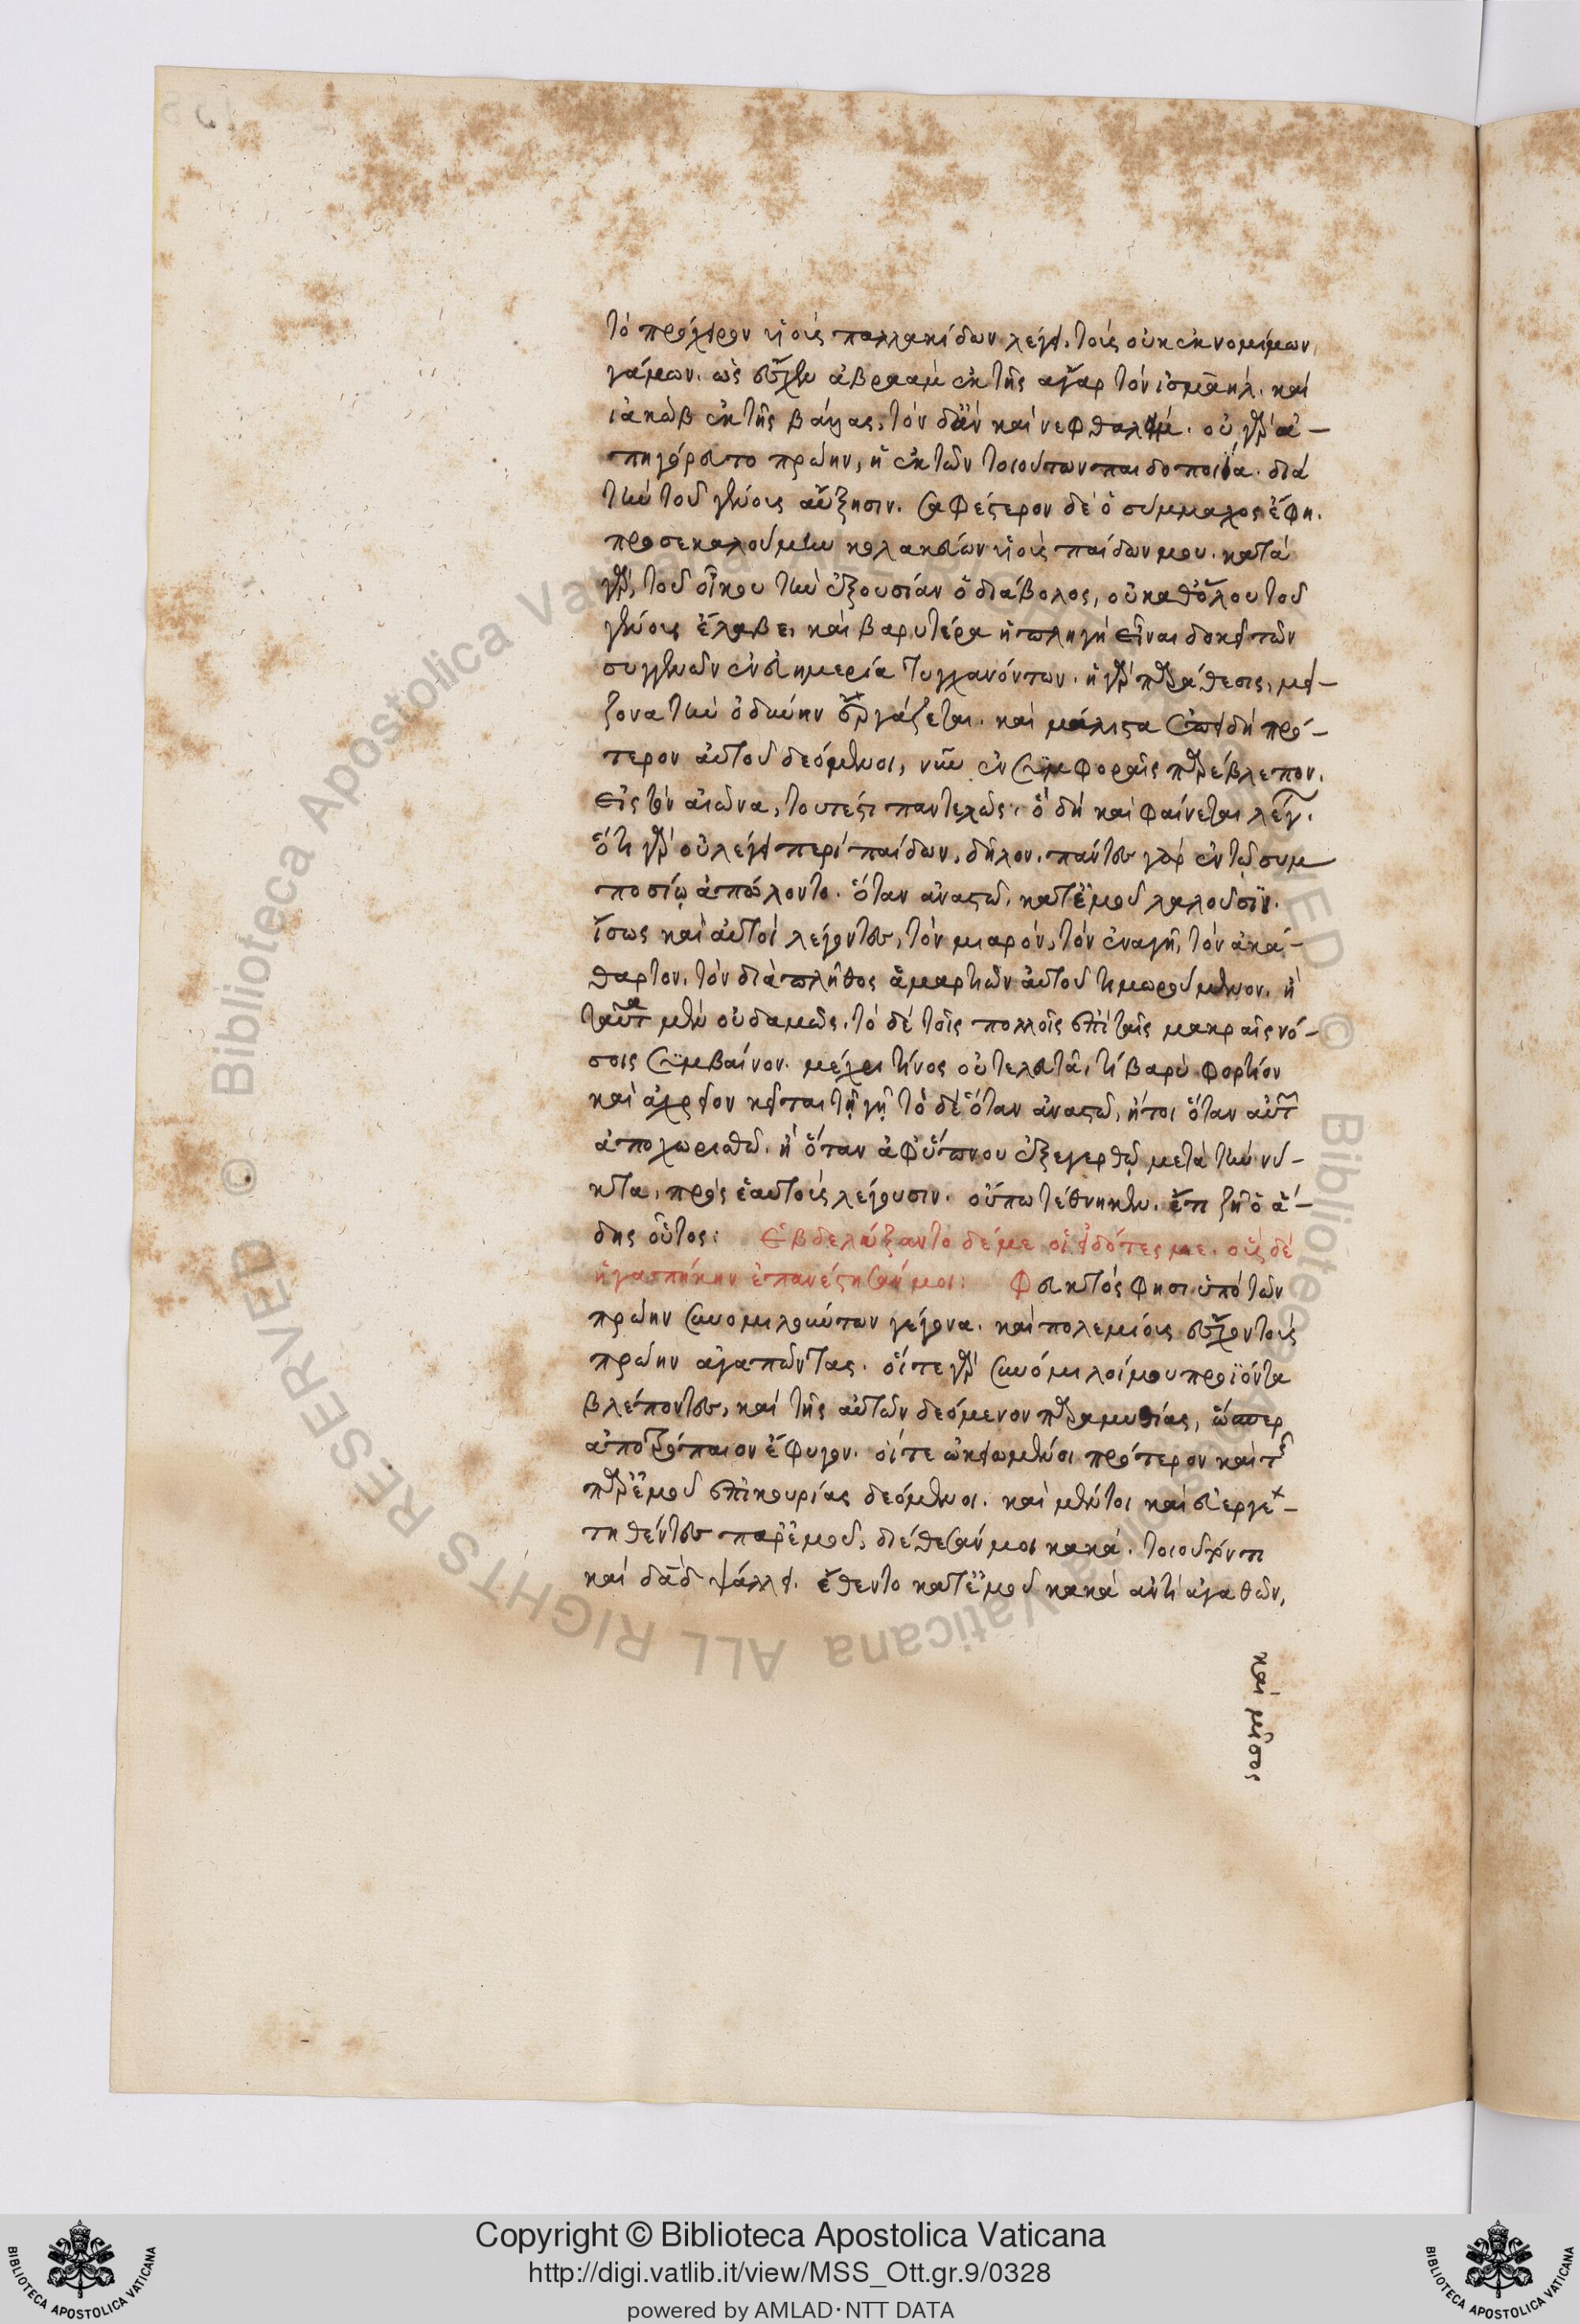 τὸ πρόχειρον υἱοὺς παλλακίδων λέγει, τοὺς οὐκ ἐκ νομίμων
γάμων. ὡς εἶχεν ἀβραὰμ ἐκ τῆς ἄγαρ τὸν ἰσμαήλ. καὶ
ἰακὼβ ἐκ τῆς βάλας, τὸν δὰν καὶ νεφθαλείμ. οὐ γὰρ ἀ-
πηγόρευτο πρώην, ἡ ἐκ τῶν τοιούτων παιδοποιΐα. διὰ
τὴν τοῦ γένους αὔξησιν. σαφέστερον δὲ ὁ σύμμαχος ἔφη.
προσεκαλούμην κολακεύων υἱοὺς παίδων μου. κατὰ
γὰρ τοῦ οἴκου τὴν ἐξουσίαν ὁ διάβολος, οὐ καθόλου τοῦ
γένους ἔλαβε, καὶ βαρυτέρα ἡ πληγὴ εἶναι δοκεῖ τῶν
συγγενῶν ἐν εὐημερία τυγχανόντων. ἡ γὰρ παράθεσις, μεί-
ζονα τὴν ὀδύνην ἐργάζεται. καὶ μάλιστα ἐπειδὴ πρό-
τερον αὐτοῦ δεόμενοι, νῦν ἐν συμφοραῖς παρέβλεπον.
εἰς τὸν αἰῶνα, τουτέστι παντελῶς. ὃ δὴ καὶ φαίνεται λέγειν.
ὅτι γὰρ οὐ λέγει περὶ παίδων, δῆλον. πάντες γὰρ ἐν τῷ συμ
ποσίῳ ἀπώλοντο. ὅταν ἀναστῶ, κατ' ἐμοῦ λαλοῦσιν.
ἴσως καὶ αὐτοὶ λέγοντες, τὸν μιαρόν, τὸν ἐναγῆ, τὸν ἀκά-
θαρτον, τὸν διὰ πλῆθος ἁμαρτιῶν αὐτοῦ τιμωρούμενον. ἢ
ταῦτα μὲν οὐδαμῶς. τὸ δὲ τοῖς πολλοῖς ἐπὶ ταῖς μακραῖς νό-
σοις συμβαῖνον. μέχρι τίνος οὐ τελευτᾶ, τί βαρὺ φορτίον
καὶ ἀχρεῖον κεῖται τῇ γῇ τὸ δὲ ὅταν ἀναστῶ, ἤτοι ὅταν αὐτῶν
ἀποχωρισθῶ. ἢ ὅταν ἀφ' ὕπνου ἐξεγερθῶ μετὰ τὴν νύ-
κτα, πρὸς ἑαυτοὺς λέγουσιν. οὔπω τέθνηκεν. ἔτι ζῆ ὁ ἅ-
δης οὗτος: Ἐβδελύξαντο δέ με οἱ εἰδότες με. οὓς δὲ
ἠγαπήκην ἐπανέστησάν μοι: Φευκτός φησι ὑπὸ τῶν
πρώην συνομιλούντων γέγονα. καὶ πολεμίους εἶχον τοὺς
πρώην ἀγαπῶντας. οἵ τε γὰρ συνόμιλοί μου προϊόντα
βλέποντες, καὶ τῆς αὐτῶν δεόμενον παραμυθίας, ὥσπερ
ἀποτρόπαιον ἔφυγον. οἵ τε ὠκειωμένοι πρότερον καὶ τῆς
παρ' ἐμοῦ ἐπικουρίας δεόμενοι. καὶ μέντοι καὶ εὐεργε-
τηθέντες παρ' ἐμοῦ, διέθεσάν μοι κακά. τοιοῦτόν τι
καὶ δαδ ψάλλει. ἔθεντο κατ' ἐμοῦ κακὰ ἀντὶ ἀγαθῶν,
καὶ μῖσος
Copyright © Biblioteca Apostolica Vaticana
http://digi.vatlib.it/view/MSS_Ott.gr.9/0328
powered by AMLAD·NTT DATA